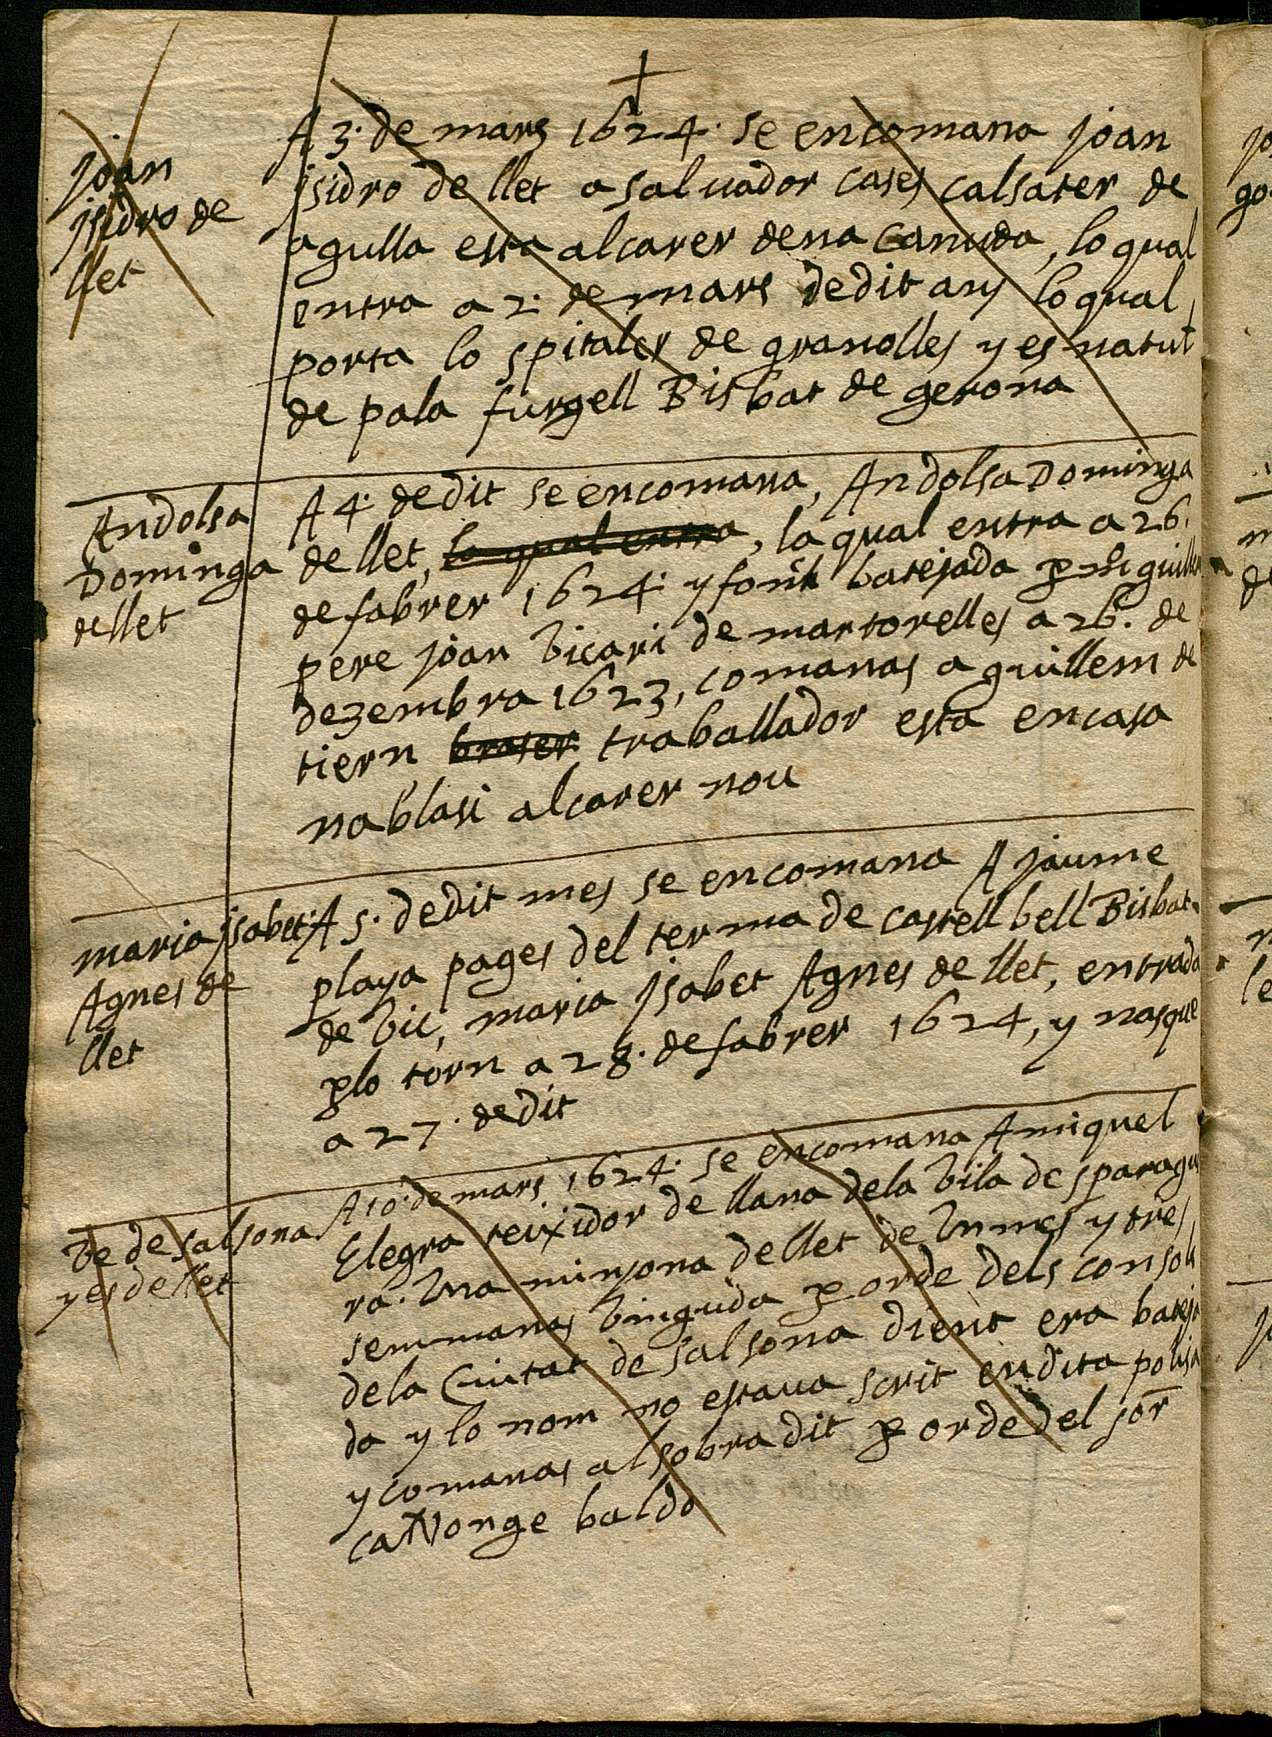 A 3. de mars 1624. se encomana joan
joan
jsidro de
llet
jsidro de llet a saluador cases calsater de
agulla esta al carer dena Canuda, lo qual
entra a 2. de mars dedit any lo qual
porta lo spitaler de granolles y es natut
de pala furgell Bisbat de gerona
Andolsa
Dominga
de llet
A 4. dedit se encomana, Andolsa Dominga
de llet, la qual entra, la qual entra a 26.
de fabrer 1624. y fonch batejada p
pere joan Vicari de martorelles a 26. de
dezembra 1623, comanas a guillem de
tiern braser traballador esta encasa
na blasi al carer nou
maria jsabet
Agnes de
llet
A 5. dedit mes se encomana A jaume
playa pages del terma de castell bell Bisbat
de Vic, maria jsabet Agnes de llet, entrada
plo torn a 28. de fabrer 1624, y nasque
a 27. dedit
Ve de salsona
y es de llet
A 10. de mars 1624. se encomana A miquel
Elegra teixidor de llana dela Vila de sparagu
ra. Vna minyona de llet de Vn mes y tres
semmanas Vinguda p orde dels consols
dela Ciutat de salsona dient era bateja
da y lo nom no estaua scrit en dita polisa
y comanas al sobradit p orde del sor
caNonge baldo